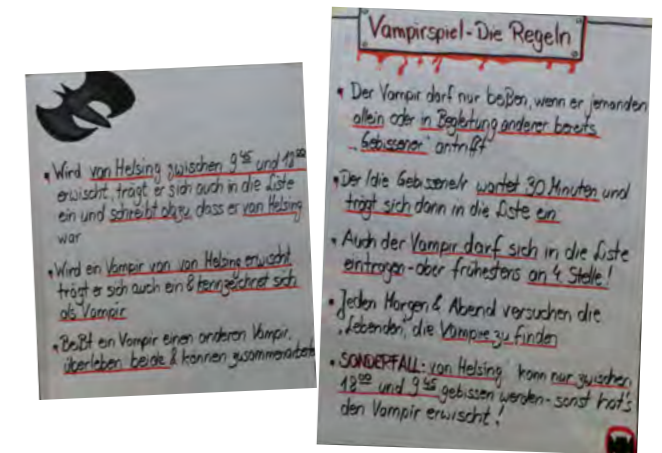 Wird van Helsing zwischen 9⁴⁵ und 18⁰⁰
erwischt, trägt er sich auch in die Liste
ein und schreibt dazu, dass er van Helsing
war
Wird ein Vampir von van Helsing erwischt
trägt er sich auch ein & kennzeichnet sich
als Vampir
Beißt ein Vampir einen anderen Vampir,
überleben beide & können zusammenarbeiten
Vampirspiel - Die Regeln
Der Vampir darf nur beißen, wenn er jemanden
allein oder in Begleitung anderer bereits
„Gebissener“ antrifft
Der/die Gebissene/r wartet 30 Minuten und
trägt sich dann in die Liste ein
Auch der Vampir darf sich in die Liste
eintragen - aber frühestens an 4. Stelle!
Jeden Morgen & Abend versuchen die
„Lebenden“, die Vampire zu finden
SONDERFALL: van Helsing kann nur zwischen
18⁰⁰ und 9⁴⁵ gebissen werden - sonst hat's
den Vampir erwischt!